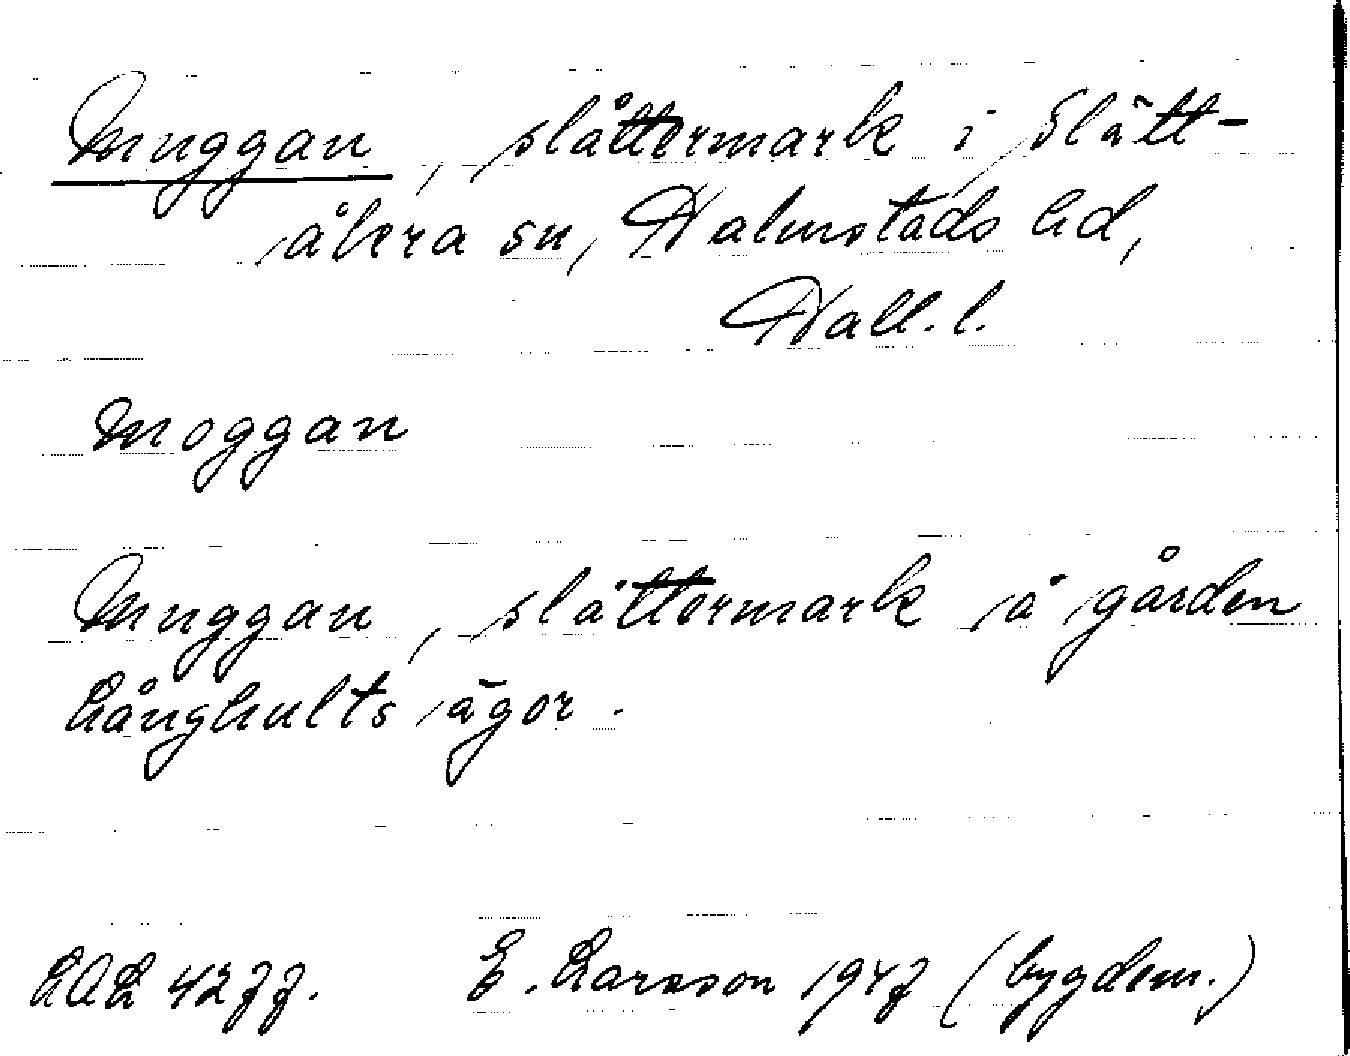 Muggan, slåttermark i Slätt-
åkra sn, Halmstads hd,
Hall. l.
Moggan
Muggan, slåttermark å gården
Långhults ägor.
LAL 4277. E. Larsson 1947 (bygdem.)